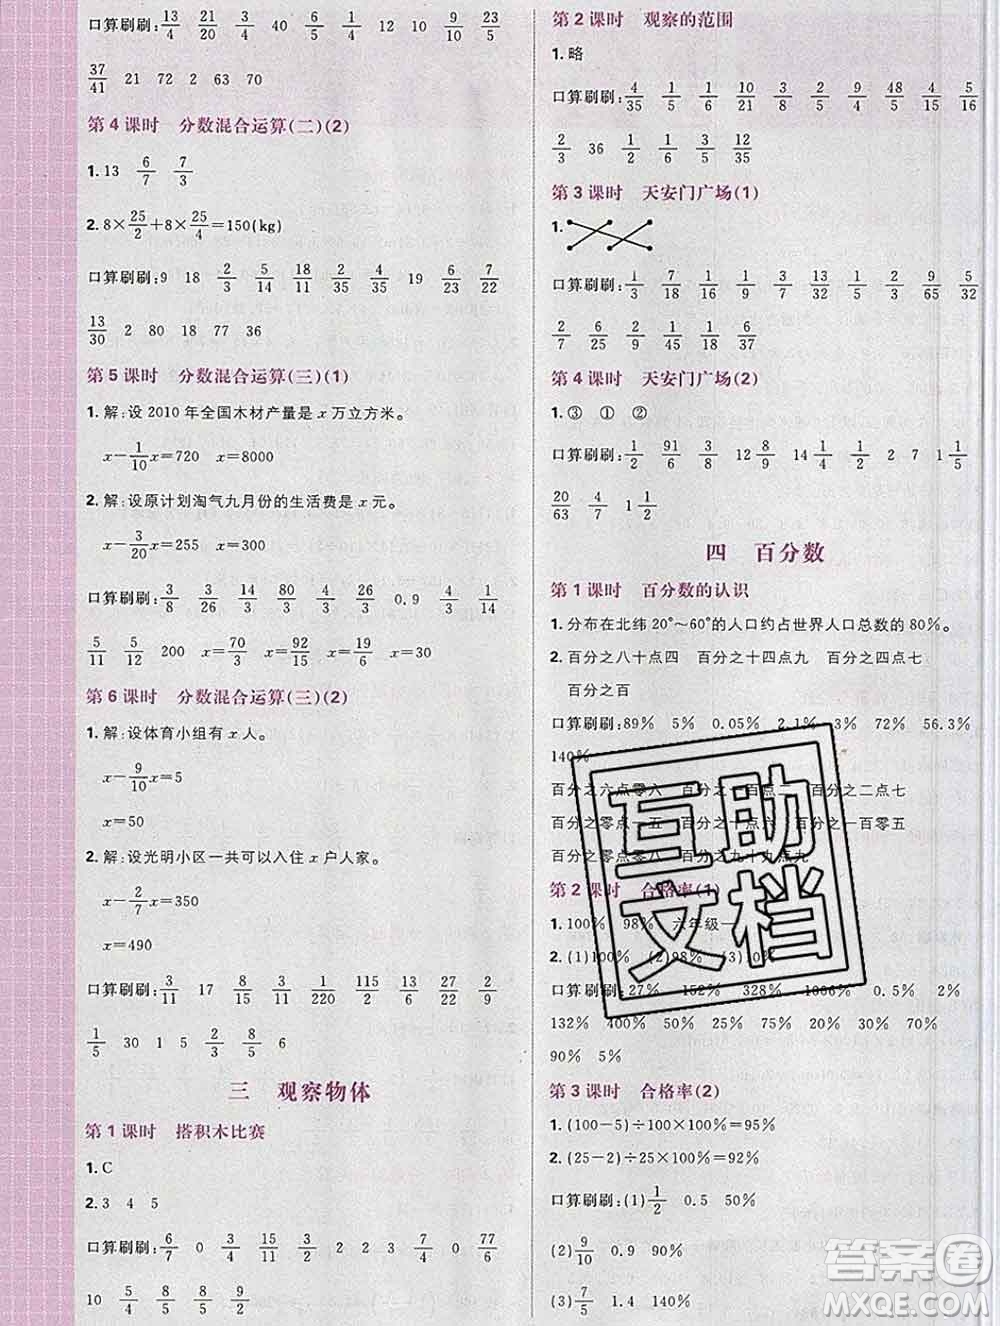 口算刷刷: 13/4 21/20 40 6/5 1/4 12 10 9/4 5/6
37/41 21 72 2 63 70
第 4 课时 分数混合运算(二)(2)
1. 13 6/7 7/3
2. 8×25/2+8×25/4=150(kg)
口算刷刷: 9 18 2/3 5/14 18/11 2/35 4/35 19 6/23 7/22
13/30 2 80 18 77 36
第 5 课时 分数混合运算(三)(1)
1. 解:设 2010 年全国木材产量是 x 万立方米。
x−1/10x=720 x=8000
2. 解:设原计划淘气九月份的生活费是 x 元。
x−3/20x=255 x=300
口算刷刷: 3/8 3/26 14/3 3/80 3/26 34/35 0.9 4/3 1/14
5/11 5/12 200 x=70/3 x=92/15 x=64/21
第 6 课时 分数混合运算(三)(2)
1. 解:设体育小组有 x 人。
x−9/10x=5
x=50
2. 解:设光明小区一共可以入住 x 户人家。
x−2/7x=350
x=490
口算刷刷: 3/11 17 8/15 3/11 1/220 115/2 13/6 6/27 2/9
1/5 30 1 5 2/3 8/5 6
三 观察物体
第 1 课时 搭积木比赛
1. C
2. 3 4 5
口算刷刷: 6/7 0 3/4 15/11 3/2 2 2 3 7/4 0 77/6
10 5/4 8/5 9/2
第 2 课时 观察的范围
1. 略
口算刷刷: 4/35 1/5 1/6 10/21 3/2 9/4 48/5 4/15 5/16
2/3 36 1/35 4/3 12/35
第 3 课时 天安门广场(1)
1.
口算刷刷: 1/3 7/18 1/16 1/18 1/15 1/3 2/5 9/65 5/14
2/7 6/35 1/15 1/2 6/37
第 4 课时 天安门广场(2)
1. ③ ① ②
口算刷刷: 1/2 91/6 3/4 12 8/9 14 1/4 2 7 1 1/2
20/63 4/7 1 1/2
四 百分数
第 1 课时 百分数的认识
1. 分布在北纬 20°～60°的人口约占世界人口总数的 80%。
2. 百分之八十点四 百分之十四点九 百分之四点七
百分之百
口算刷刷: 89% 5% 0.05% 2.1% 3% 72% 56.3%
140%
百分之六点零六 百分之一百点一 百分之二点七
百分之零点一五 百分之六点六 百分之一百零五
百分之零点零八 百分之九十九点九
第 2 课时 合格率(1)
1. 100% 98% 六年级一
2. (1)100% (2)98% (3)10%
口算刷刷: 27% 152% 328% 1006% 0.5% 2%
132% 400% 50% 25% 75% 20% 30%
90% 5%
第 3 课时 合格率(2)
1. (100−5)÷100×100%=95%
2. (25−2)÷25×100%=92%
口算刷刷: (1)1/2 0.5 50%
(2)9/10 0.9 90%
(3)7/5 1.4 140%
互助
文档
答案圈
MXQE.COM